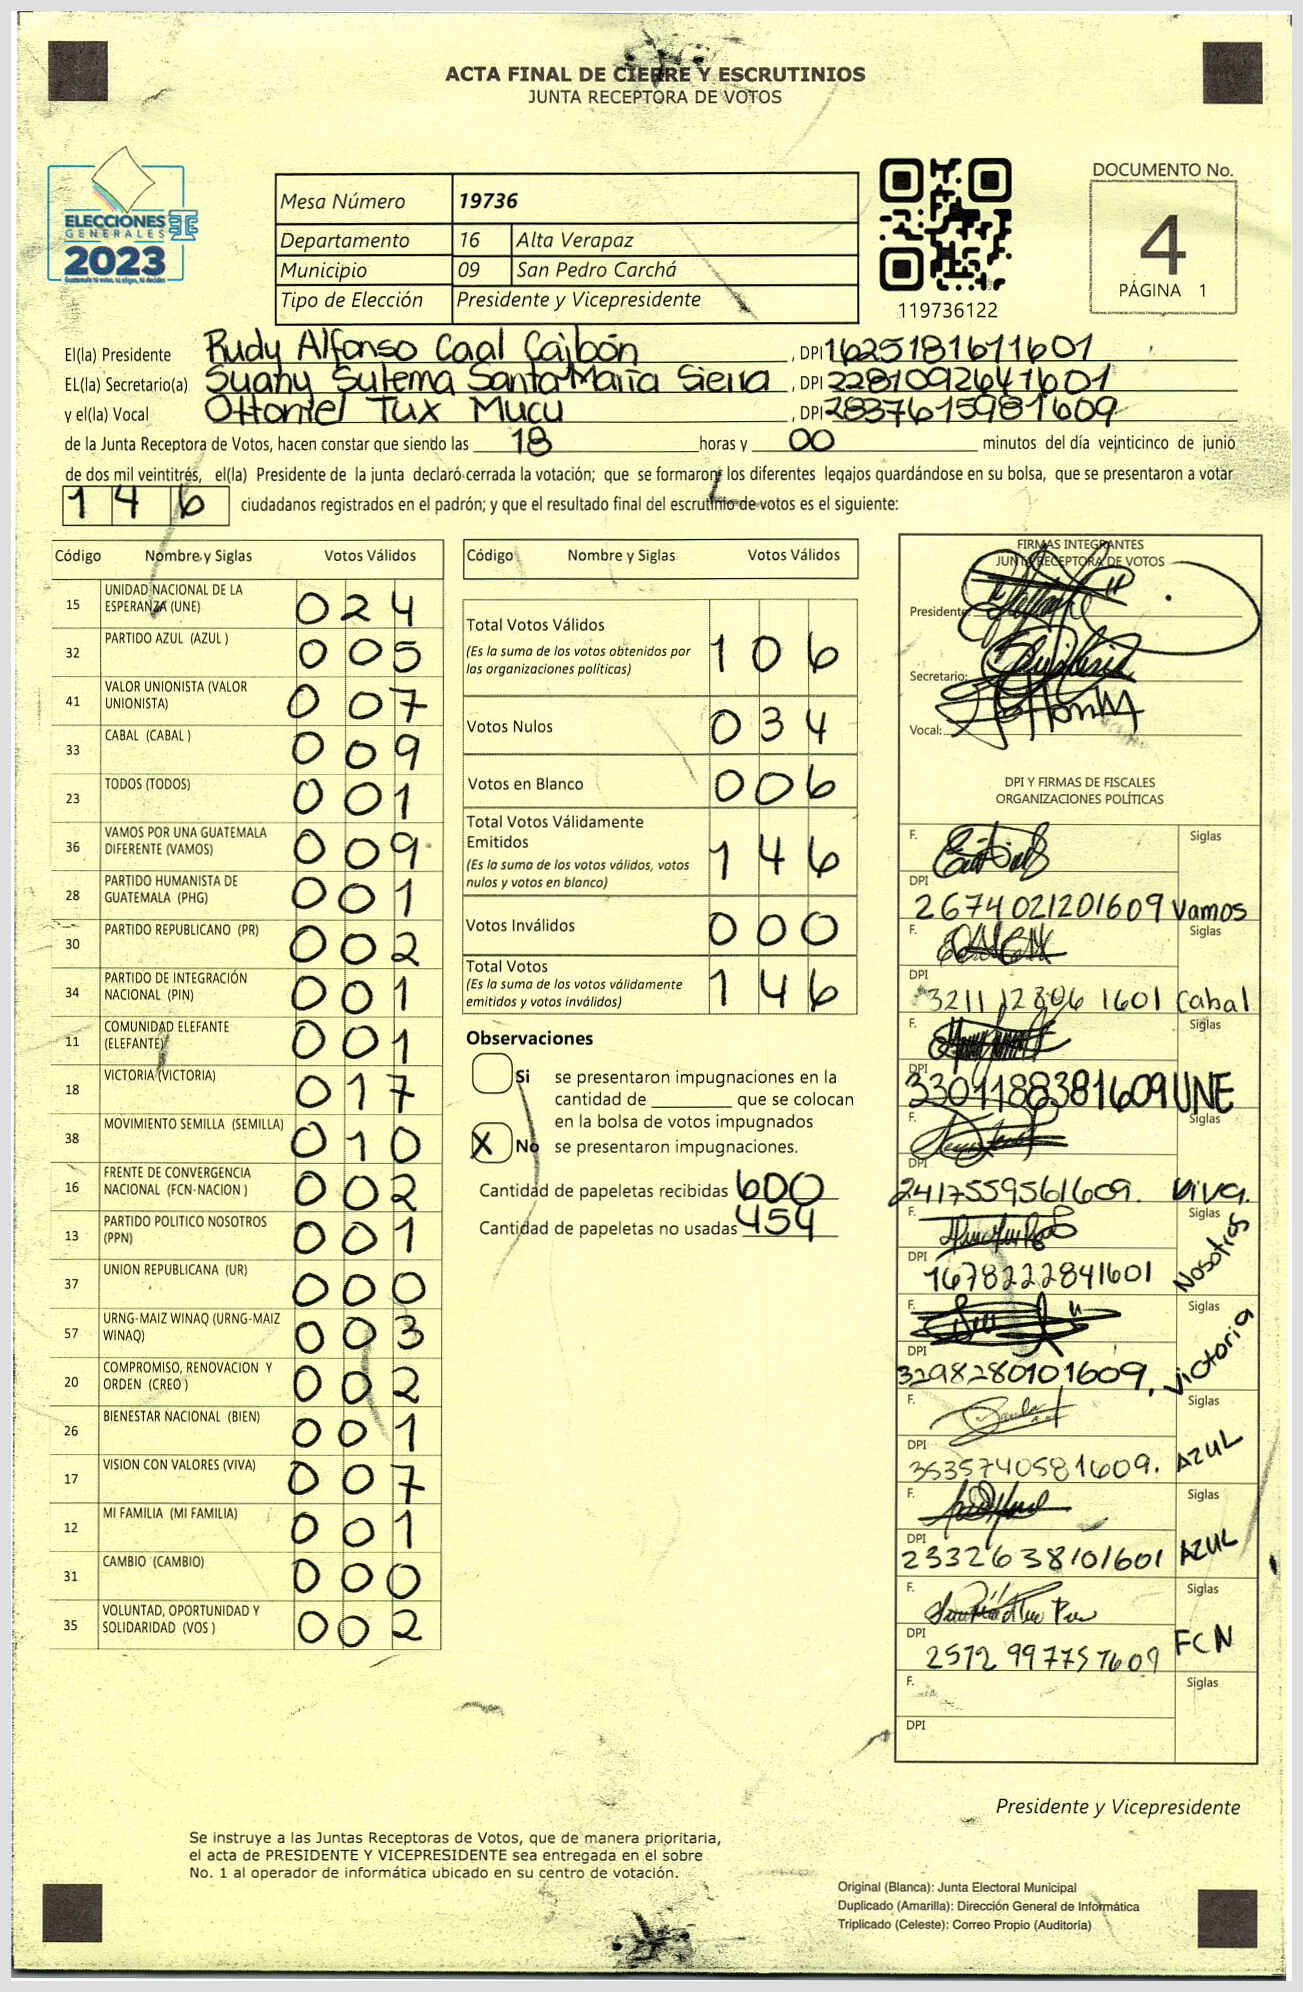 ACTA FINAL DE CIERRE Y ESCRUTINIOS
JUNTA RECEPTORA DE VOTOS
ELECCIONES
GENERALES
2023
Guatemala tú votas, tú eliges, tú decides
Mesa Número 19736
Departamento 16 Alta Verapaz
Municipio 09 San Pedro Carchá
Tipo de Elección Presidente y Vicepresidente
119736122
DOCUMENTO No.
4
PÁGINA 1
El(la) Presidente Rudy Alfonso Caal Cajbón, DPI 1625181611601
EL(la) Secretario(a) Suany Sulema SantaMaría Sierra, DPI 2281092641601
y el(la) Vocal Ottoniel Tux Mucu, DPI 2837615981609
de la Junta Receptora de Votos, hacen constar que siendo las 18 horas y 00 minutos del día veinticinco de junio
de dos mil veintitrés, el(la) Presidente de la junta declaró cerrada la votación; que se formaron los diferentes legajos guardándose en su bolsa, que se presentaron a votar
146 ciudadanos registrados en el padrón; y que el resultado final del escrutinio de votos es el siguiente:
Código Nombre y Siglas Votos Válidos
15 UNIDAD NACIONAL DE LA
ESPERANZA (UNE) 024
32 PARTIDO AZUL (AZUL ) 005
41 VALOR UNIONISTA (VALOR
UNIONISTA) 007
33 CABAL (CABAL ) 009
23 TODOS (TODOS) 001
36 VAMOS POR UNA GUATEMALA
DIFERENTE (VAMOS) 009
28 PARTIDO HUMANISTA DE
GUATEMALA (PHG) 001
30 PARTIDO REPUBLICANO (PR) 002
34 PARTIDO DE INTEGRACIÓN
NACIONAL (PIN) 001
11 COMUNIDAD ELEFANTE
(ELEFANTE) 001
18 VICTORIA (VICTORIA) 017
38 MOVIMIENTO SEMILLA (SEMILLA) 010
16 FRENTE DE CONVERGENCIA
NACIONAL (FCN-NACION ) 002
13 PARTIDO POLITICO NOSOTROS
(PPN) 001
37 UNION REPUBLICANA (UR) 000
57 URNG-MAIZ WINAQ (URNG-MAIZ
WINAQ) 003
20 COMPROMISO, RENOVACION Y
ORDEN (CREO ) 002
26 BIENESTAR NACIONAL (BIEN) 001
17 VISION CON VALORES (VIVA) 007
12 MI FAMILIA (MI FAMILIA) 001
31 CAMBIO (CAMBIO) 000
35 VOLUNTAD, OPORTUNIDAD Y
SOLIDARIDAD (VOS ) 002
Código Nombre y Siglas Votos Válidos
Total Votos Válidos
(Es la suma de los votos obtenidos por
las organizaciones políticas) 106
Votos Nulos 034
Votos en Blanco 006
Total Votos Válidamente
Emitidos
(Es la suma de los votos válidos, votos
nulos y votos en blanco) 146
Votos Inválidos 000
Total Votos
(Es la suma de los votos válidamente
emitidos y votos inválidos) 146
Observaciones
Si se presentaron impugnaciones en la
cantidad de ________ que se colocan
en la bolsa de votos impugnados
X No se presentaron impugnaciones.
Cantidad de papeletas recibidas 600
Cantidad de papeletas no usadas 454
FIRMAS INTEGRANTES
JUNTA RECEPTORA DE VOTOS
Presidente:
Secretario:
Vocal:
DPI Y FIRMAS DE FISCALES
ORGANIZACIONES POLÍTICAS
F. Siglas
DPI
2674021201609 Vamos
F. Siglas
DPI
3211128061601 Cabal
F. Siglas
DPI
3301188381609 UNE
F. Siglas
DPI
2417559561609. Viva.
F. Siglas
DPI
1678222841601 Nosotros
F. Siglas
DPI
3298280101609. Victoria
F. Siglas
DPI
3535740581609. AZUL
F. Siglas
DPI
2332638101601 AZUL
F. Siglas
DPI
2572997751609 FCN
F. Siglas
DPI
Presidente y Vicepresidente
Se instruye a las Juntas Receptoras de Votos, que de manera prioritaria,
el acta de PRESIDENTE Y VICEPRESIDENTE sea entregada en el sobre
No. 1 al operador de informática ubicado en su centro de votación.
Original (Blanca): Junta Electoral Municipal
Duplicado (Amarilla): Dirección General de Informática
Triplicado (Celeste): Correo Propio (Auditoría)